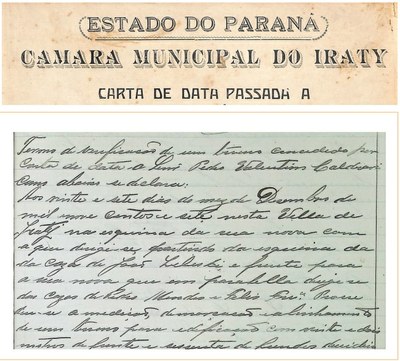 ESTADO DO PARANÁ
CAMARA MUNICIPAL DO IRATY
CARTA DE DATA PASSADA A
Termo de verificação de um terreno concedido por
Carta de data a Pedro Valentim
como abaixo se declara:
Aos vinte e sete dias do mez de Dezembro de
mil nove centos e sete nesta Villa de
Iraty na esquina da rua nova com
a que dirige-se, partindo da esquina da
da caza de João e frente para
a rua nova que em parallelo dirije-se
das cazas de Pedro Mendes e
a medição, demarcação e alinhamento
de um terreno para edificação com vinte e dois
metros de frente e sessenta de fundos